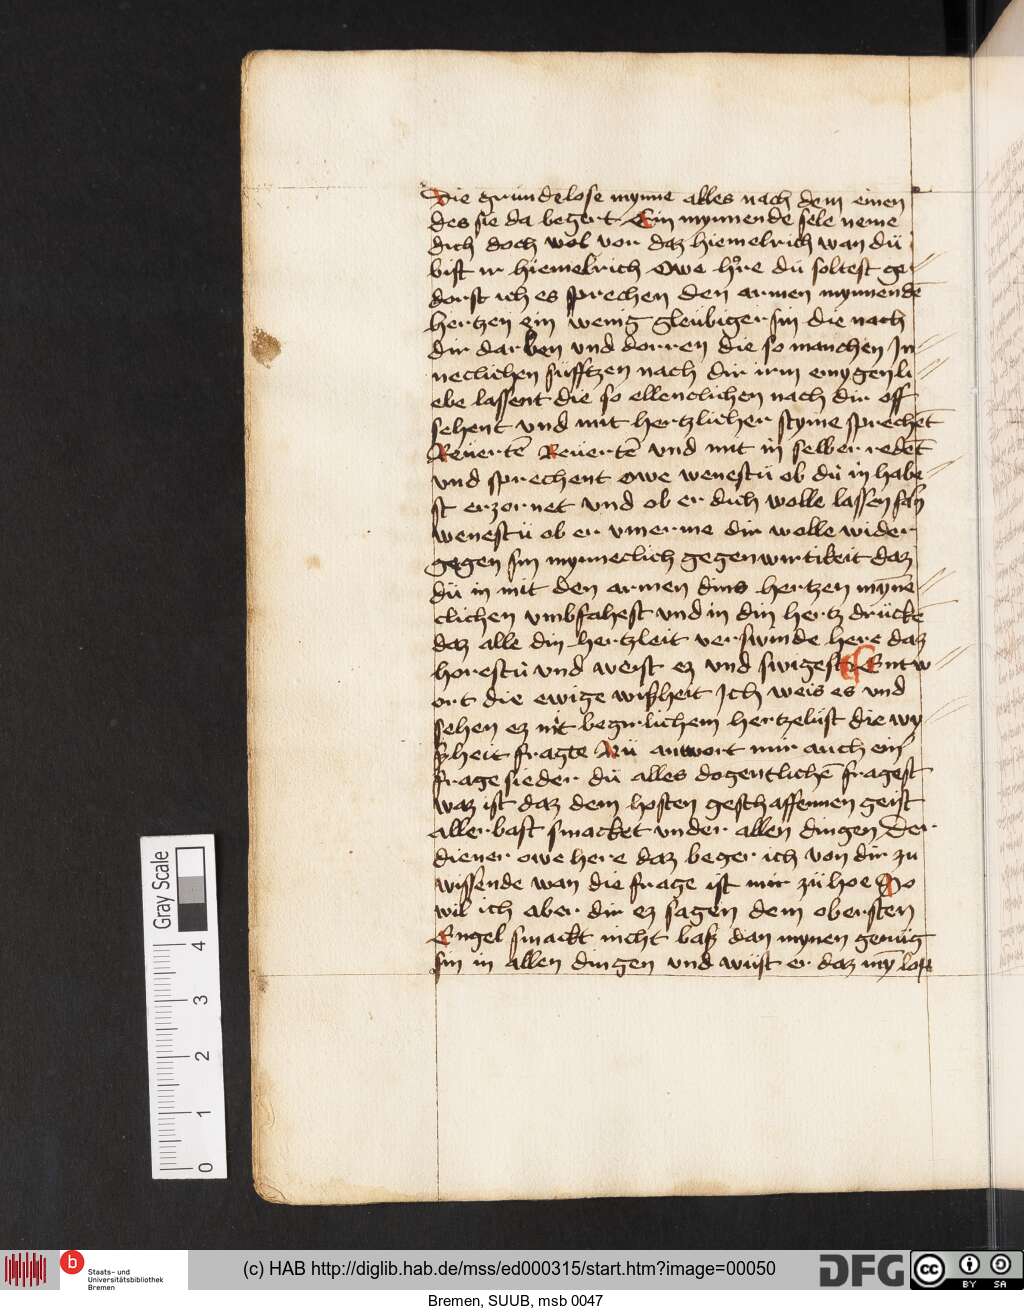 Die grundelose mynne alles nach dem einen
des sie da begert Ein mynnende sele neme
dich doch wol vor daz hiemelrich wan dü
bist ir hiemelrich Owe hre dü soltest ge
dorst ich es sprechen den armen mynnendē
hertzen ein wenig gleubiger sin die nach
dir darben vnd dorren die so manchen In
neclichen süfftzen nach dir irm eynygen li
ebe lassent die so ellenclichen nach dir off
sehent vnd mit hertzlicher styme sprechēt
Reuertē Reuertē vnd mit in selber redēt
vnd sprechent owe wenestu ob dü in habe
st erzornet vnd ob er dich wolle lassen
wenestü ob er ymerme dir wolle wider
gegen sin mynneclich gegenwirtikeit daz
dü in mit den armen dins hertzen mȳne
clichen vmbfahest vnd in din hertz drücke
daz alle din hertzleit verswinde here daz
horestü vnd weist ez vnd swigest Entw
ort die ewige wißheit Ich weis es vnd
sehen ez mit begirlichem hertzelüst die wy
ßheit fragte Nü antwort mir auch ein
frage sieder dü alles dogentlichē fragest
waz ist daz dem hosten geschaffennen geist
aller bast smacket vnder allen dingen Der
diener owe here daz beger ich von dir zu
wissende wan die frage ist mir zü hoe So
wil ich aber dir ez sagen dem obersten
Engel smackt nicht baß dan mynen genüg
sin in allen dingen vnd wüst er daz mȳ lop
Gray Scale
4
3
2
1
0
b
Staats- und
Universitätsbibliothek
Bremen
(c) HAB http://diglib.hab.de/mss/ed000315/start.htm?image=00050
DFG
cc
BY SA
Bremen, SUUB, msb 0047